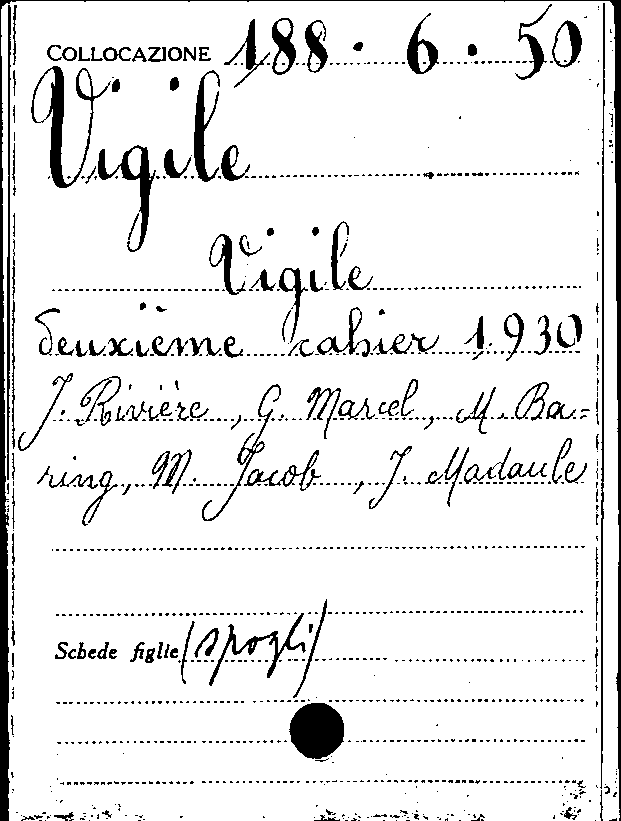 COLLOCAZIONE 188 · 6 · 50
Vigile
Vigile
deuxième cahier 1930
J. Rivière, G. Marcel, M. Ba=
ring, M. Jacob, J. Madaule
Schede figlie (spogli)